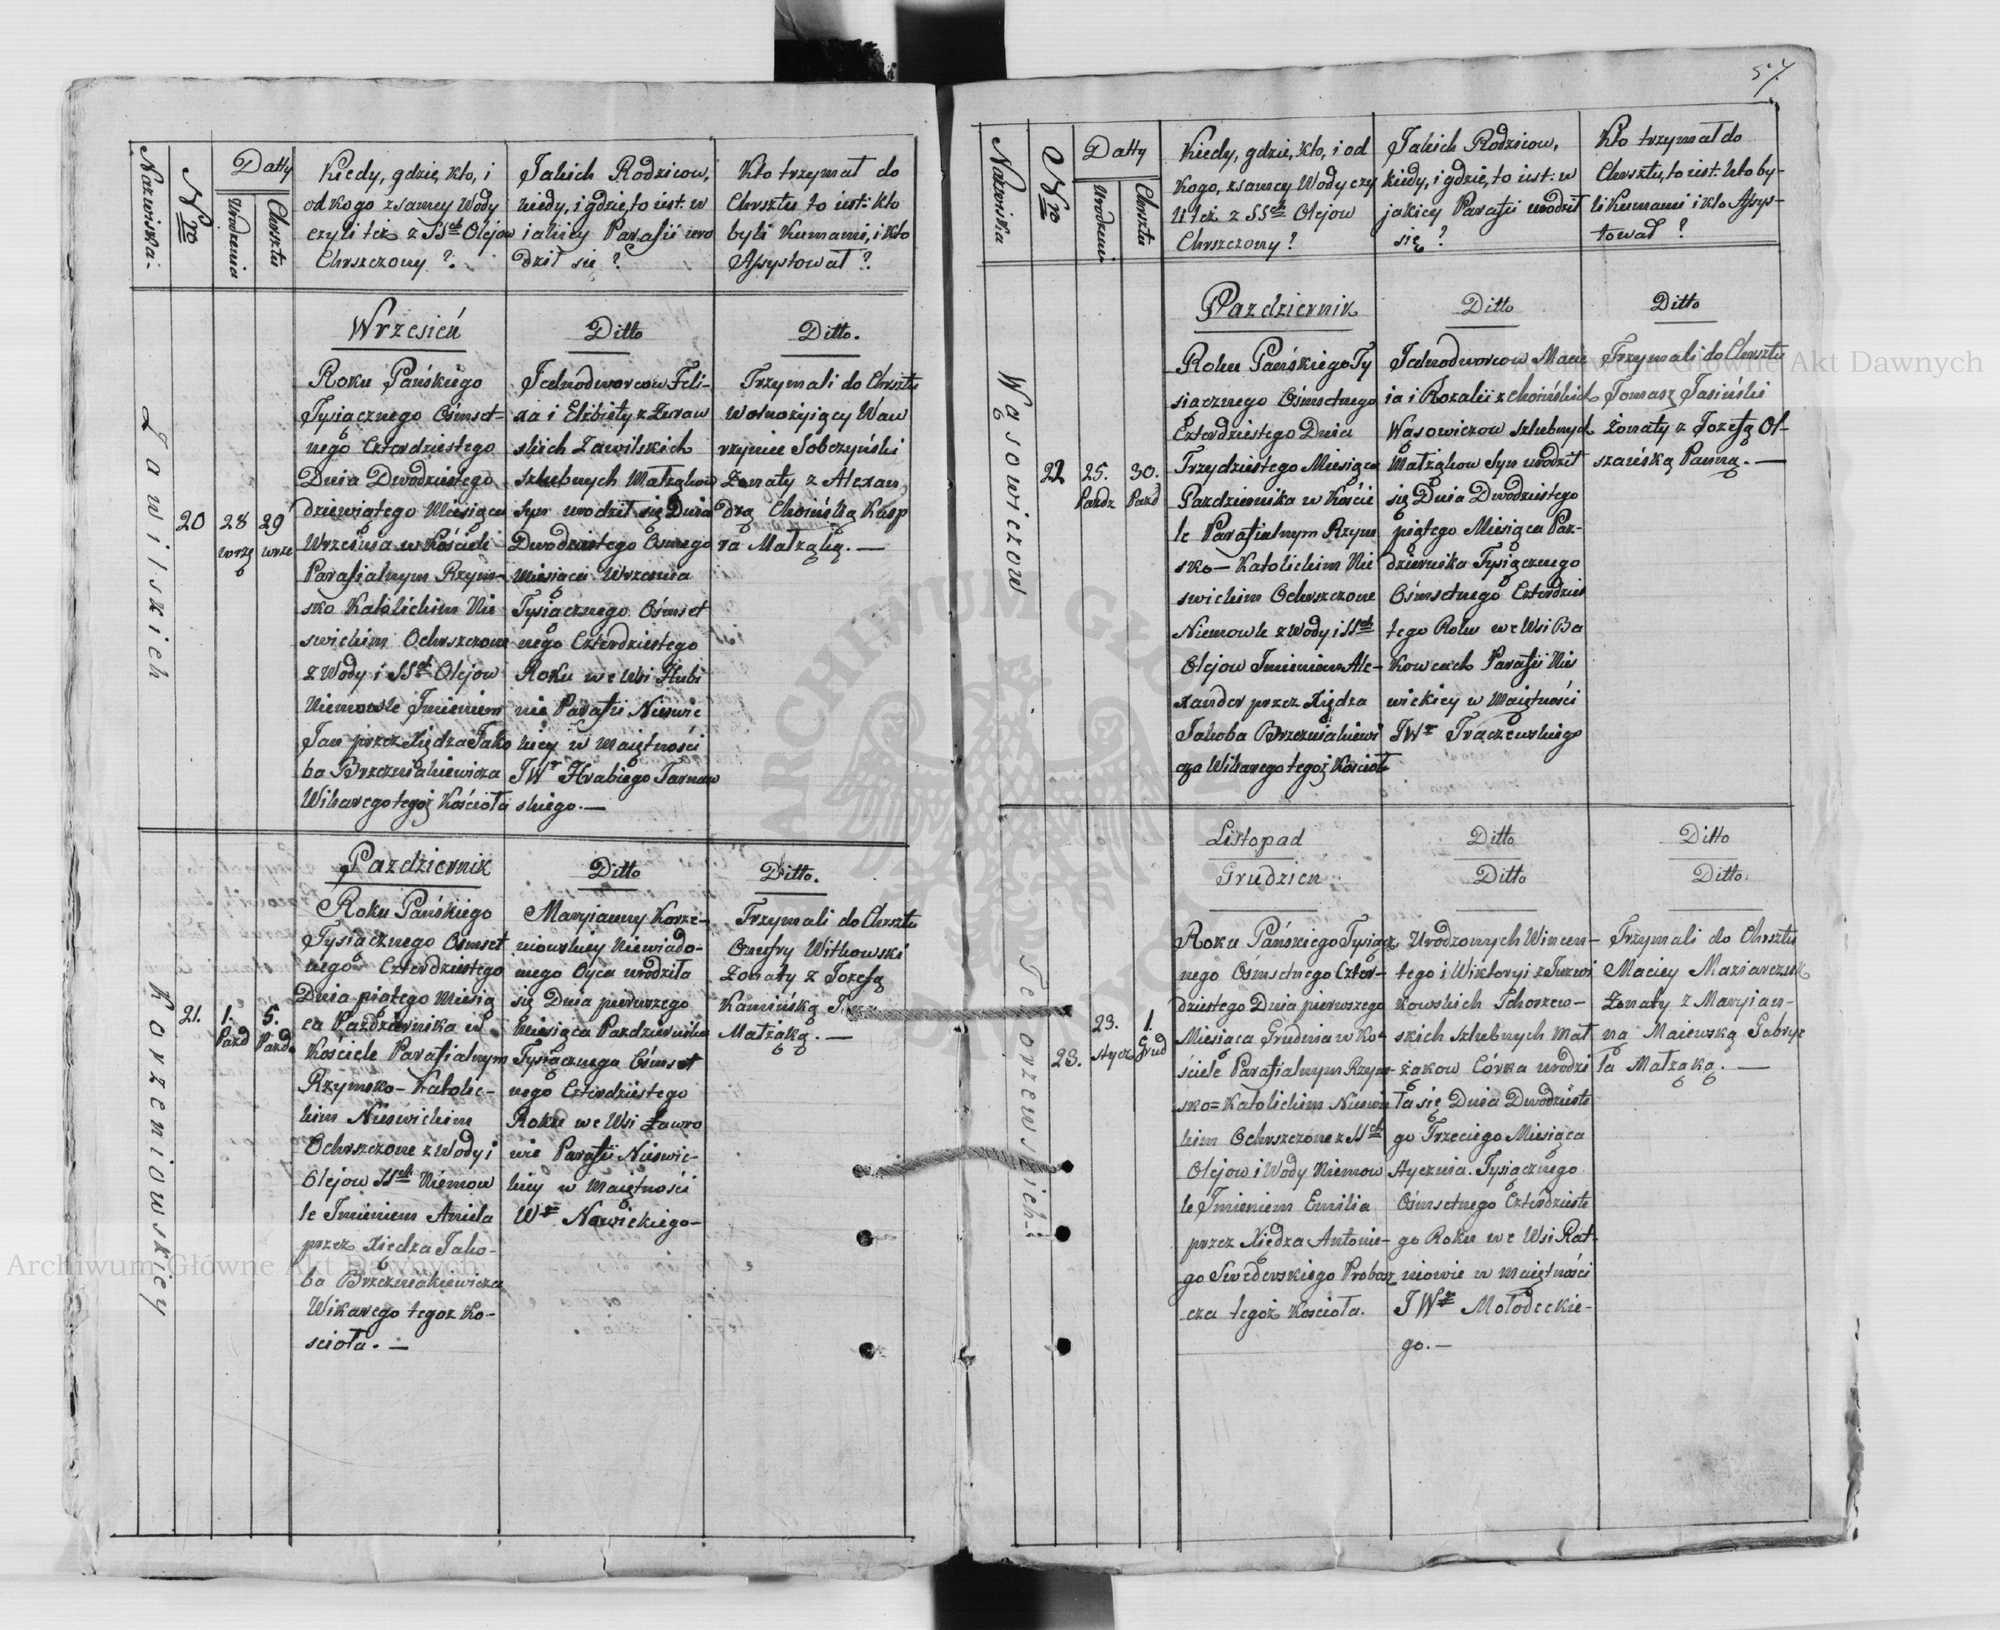 57.
Nazwiska:
Nro
Datty
Urodzenia
Chrsztu
Kiedy, gdzie, kto, i
od kogo z samey Wody
czyli też z SSch Olejow
Chrszczony ?
Jakich Rodzicow,
kiedy, i gdzie, to iest: w
iakiey Parafii uro
dził sie ?
Kto trzymał do
Chrsztu to iest: kto
byli Kumami, i kto
Assystował ?
Zawilskich
20
28
wrze
29
wrze
Wrzesień
Roku Pańskiego
Tysiącznego Ośmset-
nego Czterdziestego
Dnia Dwódziestego
dziewiątego Miesiąca
Września w Kościele
Parafialnym Rzym-
sko Katolickim Nie
swickim Ochrszczone
z Wody i SSch Olejow
Niemowle Imieniem
Jan przez Xiędza Jako
ba Brzeźniakiewicza
Wikarego tegoż Kościoła
Ditto
Jednodworcow Feli-
xa i Elżbiety z Żuraw
skich Zawilskich
szlubnych Małżąkow
Syn urodził się Dnia
Dwodziestego Osmego
Miesiąca Wrzesnia
Tysiącznego Ośmset
nego Czterdziestego
Roku we Wsi Hubi
nie Parafii Nieswic
kiey w Maiętności
JWr Hrabiego Tarnow
skiego. —
Ditto.
Trzymali do Chrsztu
Wolnożyiący Waw
rzyniec Sobczyński
Żonaty z Alexan
drą Choińską Kasp
ra Małżąką. —
Korzeniowskiey
21.
1.
Pazd
5.
Pazd.
Pazdziernik
Roku Pańskiego
Tysiącznego Osmset
nego Czterdziestego
Dnia piątego Miesią
ca Pazdziernika w
Kościele Parafialnym
Rzymsko-Katolic-
kim Nieswickim
Ochrszczone z Wody i
Olejow SSch Niemow
le Imieniem Aniela
przez Xiedza Jako-
ba Brzeźniakiewicza
Wikarego tegoz Ko-
scioła. —
Ditto
Maryianny Korze-
niowskiey Niewiado-
mego Oyca urodziła
się Dnia pierwszego
Miesiąca Pazdziernika
Tysiącznego Ośmset
nego Czterdziestego
Roku we Wsi Ławro
wie Parafii Nieswic-
kiey w Maiętności
Wgo Nowickiego-
Ditto.
Trzymali do Chrsztu
Onufry Witkowski
Żonaty z Jozefą
Kamińską
Małżąką. —
Nazwiska
Nro
Datty
Urodzenia
Chrsztu
Kiedy, gdzie, kto, i od
Kogo, z samey Wody czy
li też z SSch Olejow
Chrszczony ?
Jakich Rodzicow,
kiedy, i gdzie, to iest: w
jakiey Parafii urodził
się ?
Kto trzymał do
Chrsztu, to iest: kto by-
li Kumami i kto Assys-
tował ?
Wąsowiczow
22
25.
Pazdz
30.
Pazd
Pazdziernik
Roku Pańskiego Ty
siącznego Ośmsetnego
Czterdziestego Dnia
Trzydziestego Miesiąca
Pazdziernika w Koście
le Parafialnym Rzym
sko— Katolickim Nie
swickim Ochrszczone
Niemowle z Wody i SSch
Olejow Imieniem Ale-
xander przez Xiędza
Jakoba Brzeźniakiewi
cza Wikarego tegoż Kościoła
Ditto
Jednodworcow Macie
ia i Rozalii z Choińskich
Wąsowiczow Szlubnych
Małżąkow Syn urodził
się Dnia Dwodziestego
piątego Miesiąca Paz-
dziernika Tysiącznego
Ośmsetnego Czterdzies
tego Roku we Wsi Ba
kowcach Parafii Nies
wickiey w Maiętności
JWr Traczewskiego
Ditto
Trzymali do Chrsztu
Tomasz Jasiński
Żonaty z Jozefą Ol-
szańską Panną. —
Tchorzewskich.
23.
23.
stycz
1.
Grud
Listopad
Ditto
Ditto
Grudzien
Ditto
Ditto
Roku Pańskiego Tysiącz
nego Ośmsetnego Czter-
dziestego Dnia pierwszego
Miesiąca Grudnia w Ko-
ściele Parafialnym Rzym-
sko=Katolickim Nieswic
kim Ochrszczone z SSch
Olejow i Wody Niemow
le Imieniem Emilia
przez Xiędza Antonie-
go Swederskiego Probosz
cza tegoż Koscioła.
Urodzonych Wincen-
tego i Wiktoryi z Turzwi
kowskich Tchorzew-
skich Szlubnych Mał
żąkow Córka urodzi
ła się Dnia Dwodzieste
go Trzeciego Miesiąca
Stycznia. Tysiącznego
Ośmsetnego Czterdzieste
go Roku we Wsi Rat-
niowie w Maiętności
JWgo Mołodeckie-
go. —
Trzymali do Chrsztu
Maciey Maziarczuk
Żonaty z Maryian-
ną Maiewską Gabrye
la Małżąką. —
Archiwum Główne Akt Dawnych
Archiwum Główne Akt Dawnych